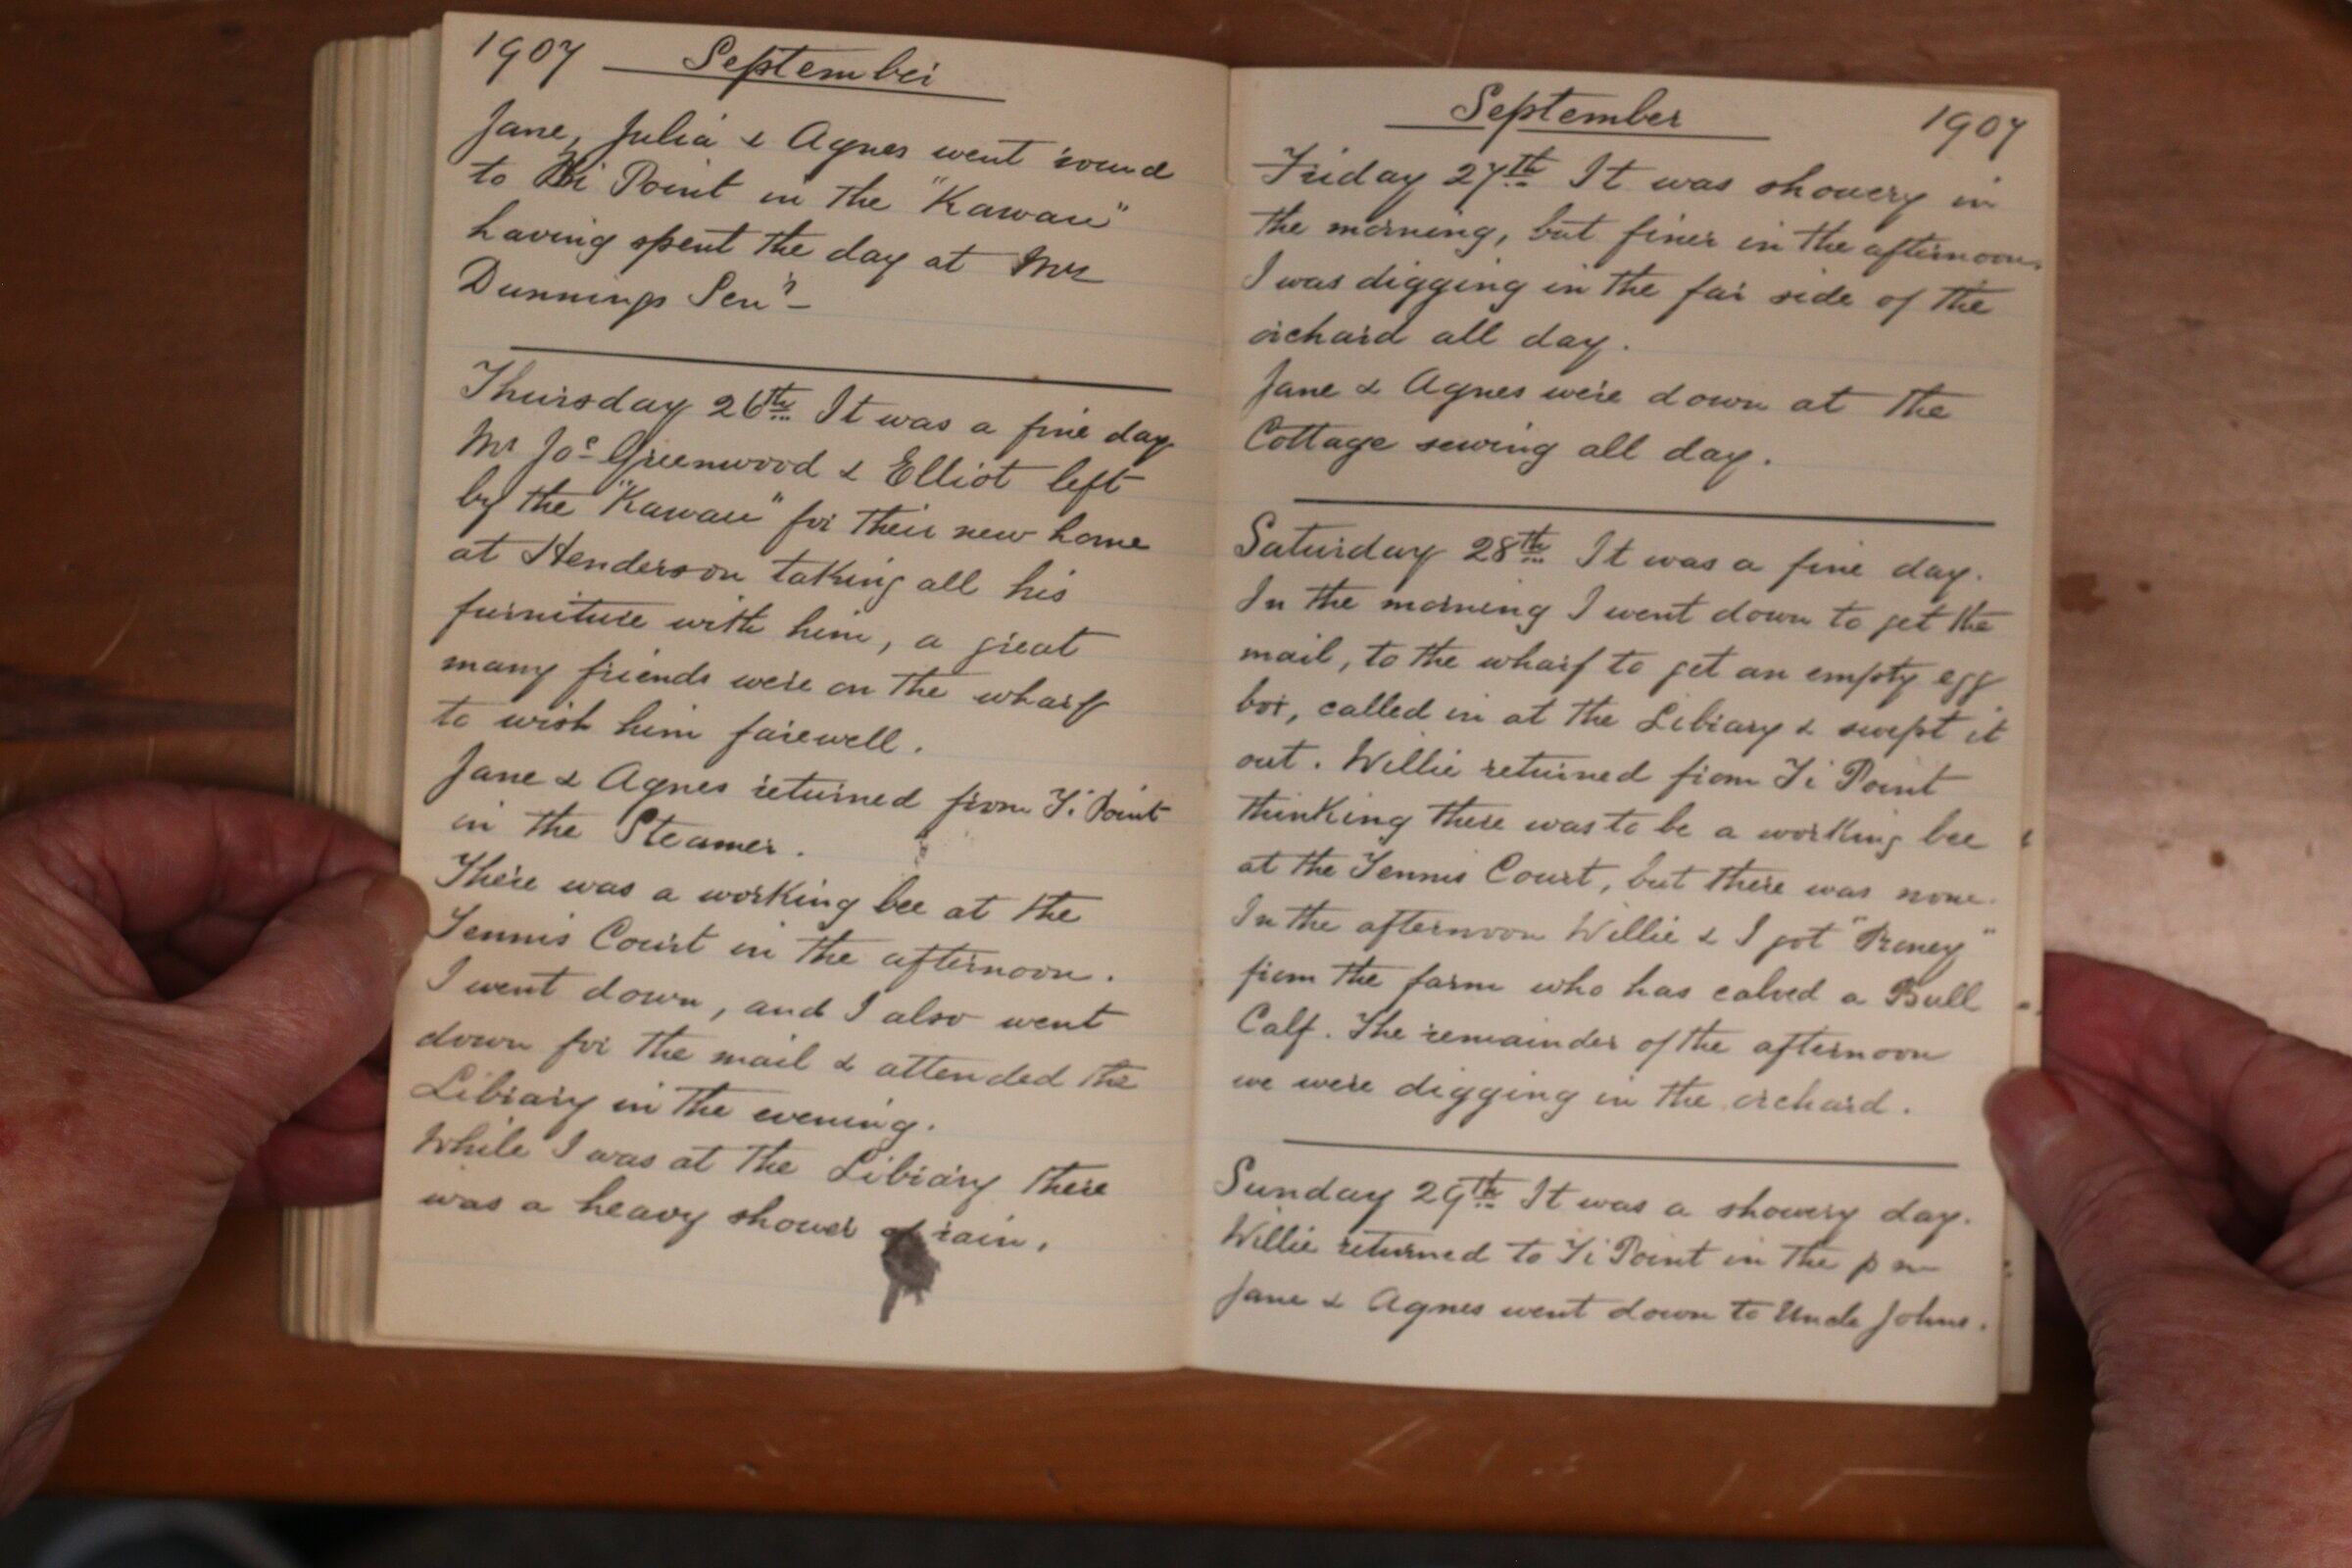 1907 September
Jane, Julia & Agnes went round
to Ti Point in the "Kawau"
having spent the day at Mr
Dunnings Senr
Thursday 26th It was a fine day
Mr Jos Greenwood & Elliot left
by the "Kawau" for their new home
at Henderson taking all his
furniture with him, a great
many friends were on the wharf
to wish him farewell.
Jane & Agnes returned from Ti Point
in the Steamer.
There was a working bee at the
Tennis Court in the afternoon.
I went down, and I also went
down for the mail & attended the
Library in the evening.
While I was at the Library there
was a heavy shower of rain.
September 1907
Friday 27th It was showery in
the morning, but finer in the afternoon.
I was digging in the far side of the
orchard all day.
Jane & Agnes were down at the
Cottage sewing all day.
Saturday 28th It was a fine day.
In the morning I went down to get the
mail, to the wharf to get an empty egg
box, called in at the Library & swept it
out. Willie returned from Ti Point
thinking there was to be a working bee
at the Tennis Court, but there was none.
In the afternoon Willie & I got
from the farm who has calved a Bull
Calf. The remainder of the afternoon
we were digging in the orchard.
Sunday 29th It was a showery day.
Willie returned to Ti Point in the pm
Jane & Agnes went down to Uncle Johns.